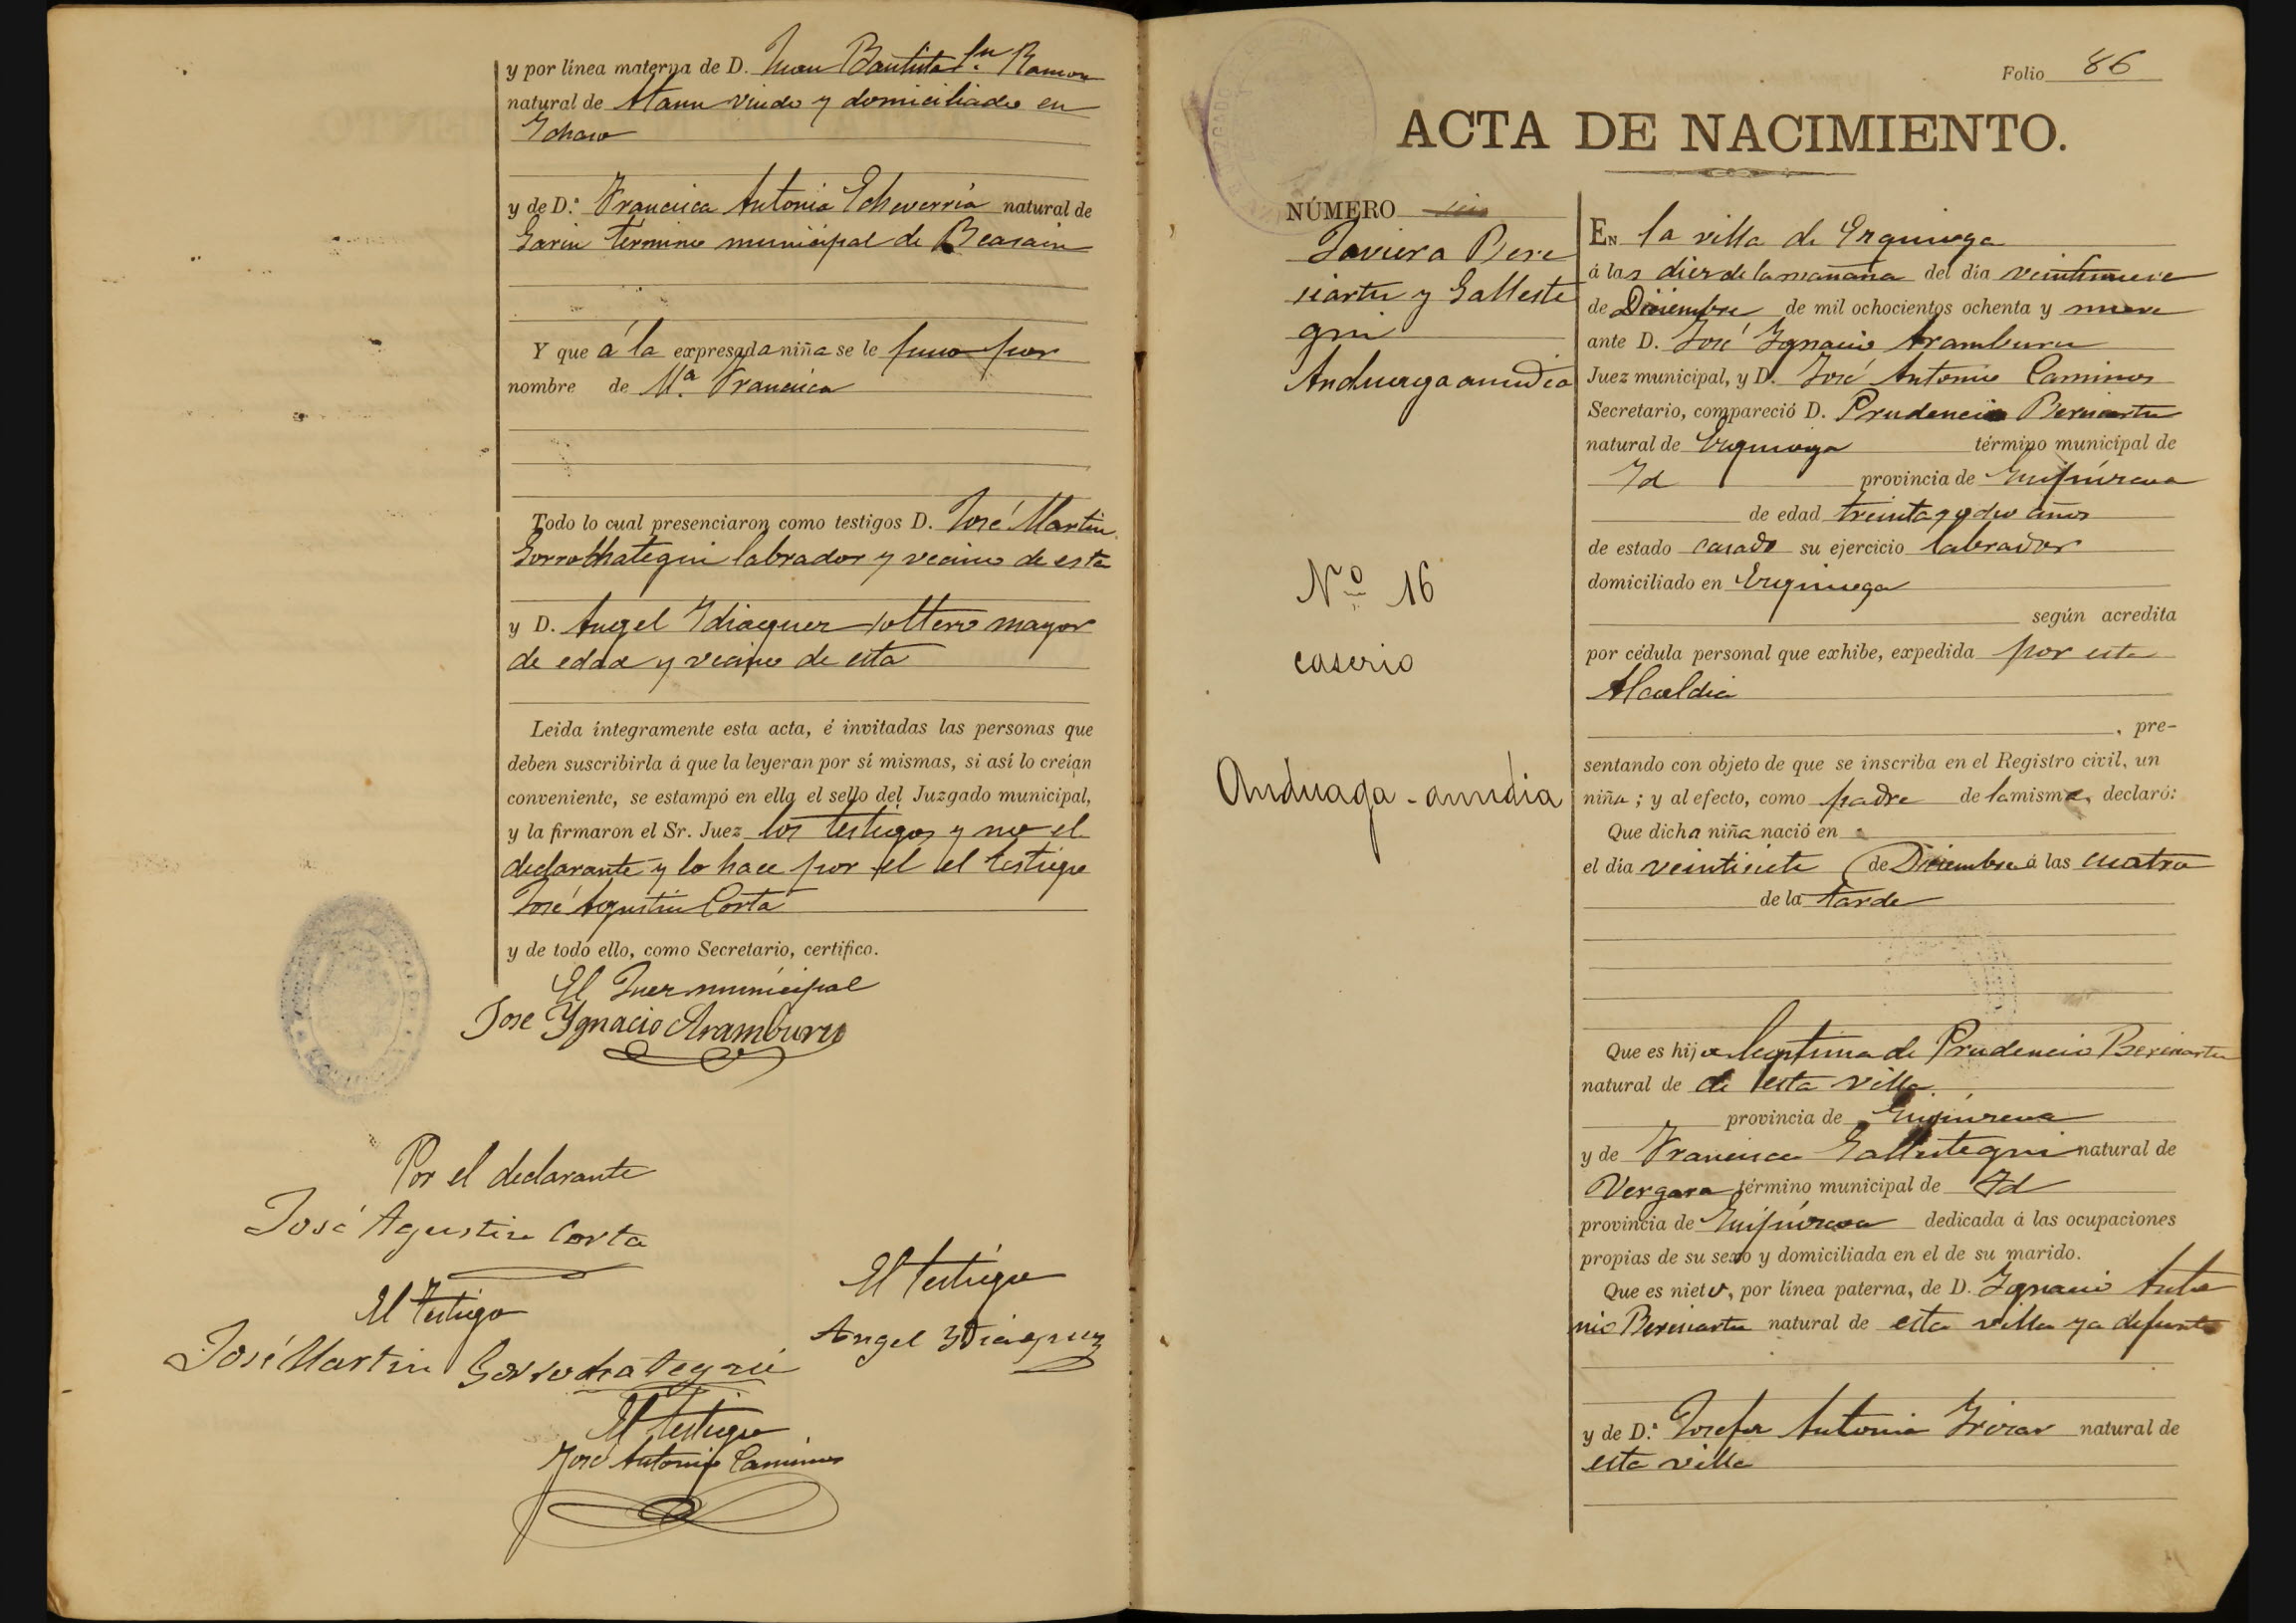 y por línea materna de D. Juan Bautista Sn Ramon
natural de Ataun viudo y domiciliado en
Ychaso
y de D.ª Francisca Antonia Echeverria natural de
Garin término municipal de Beasain
Y que á la expresada niña se le puso por
nombre de M.ª Francisca
Todo lo cual presenciaron como testigos D. José Martin
Gorrochategui labrador y vecino de esta
y D. Angel Ydiaquez soltero mayor
de edad y vecino de esta
Leida íntegramente esta acta, é invitadas las personas que
deben suscribirla á que la leyeran por sí mismas, si así lo creían
conveniente, se estampó en ella el sello del Juzgado municipal,
y la firmaron el Sr. Juez los testigos y no el
declarante y lo hace por el el testigo
José Agustin Corta
y de todo ello, como Secretario, certifico.
El Juez municipal
Jose Ygnacio Aramburu
Por el declarante
José Agustin Corta
El testigo
José Martin Gorrochategui
El testigo
Angel Ydiaquez
El testigo
José Antonio Caminos
Folio 86
ACTA DE NACIMIENTO.
NÚMERO seis
Javiera Bere
ciartu y Galleste
gui
Anduaga anudia
Nº 16
caserio
Anduaga-anudia
EN la villa de Ezquioga
á las diez de la mañana del día veintinueve
de Diciembre de mil ochocientos ochenta y nueve
ante D. José Ygnacio Aramburu
Juez municipal, y D. José Antonio Caminos
Secretario, compareció D. Prudencio Bereciartu
natural de Ezquioga término municipal de
Yd provincia de Guipúzcoa
de edad treinta y ocho años
de estado casado su ejercicio labrador
domiciliado en Ezquioga
según acredita
por cédula personal que exhibe, expedida por esta
Alcaldia
, pre-
sentando con objeto de que se inscriba en el Registro civil, un
niña; y al efecto, como padre de la misma, declaró:
Que dicha niña nació en
el día veintisiete de Diciembre á las cuatro
de la tarde
Que es hija legitima de Prudencio Bereciartu
natural de de esta villa
provincia de Guipúzcoa
y de Francisca Gallestegui natural de
Vergara término municipal de Id
provincia de Guipúzcoa dedicada á las ocupaciones
propias de su sexo y domiciliada en el de su marido.
Que es nieta, por línea paterna, de D. Ygnacio Anto
nio Bereciartu natural de esta villa ya difunto
y de D.ª Josefa Antonia natural de
esta villa